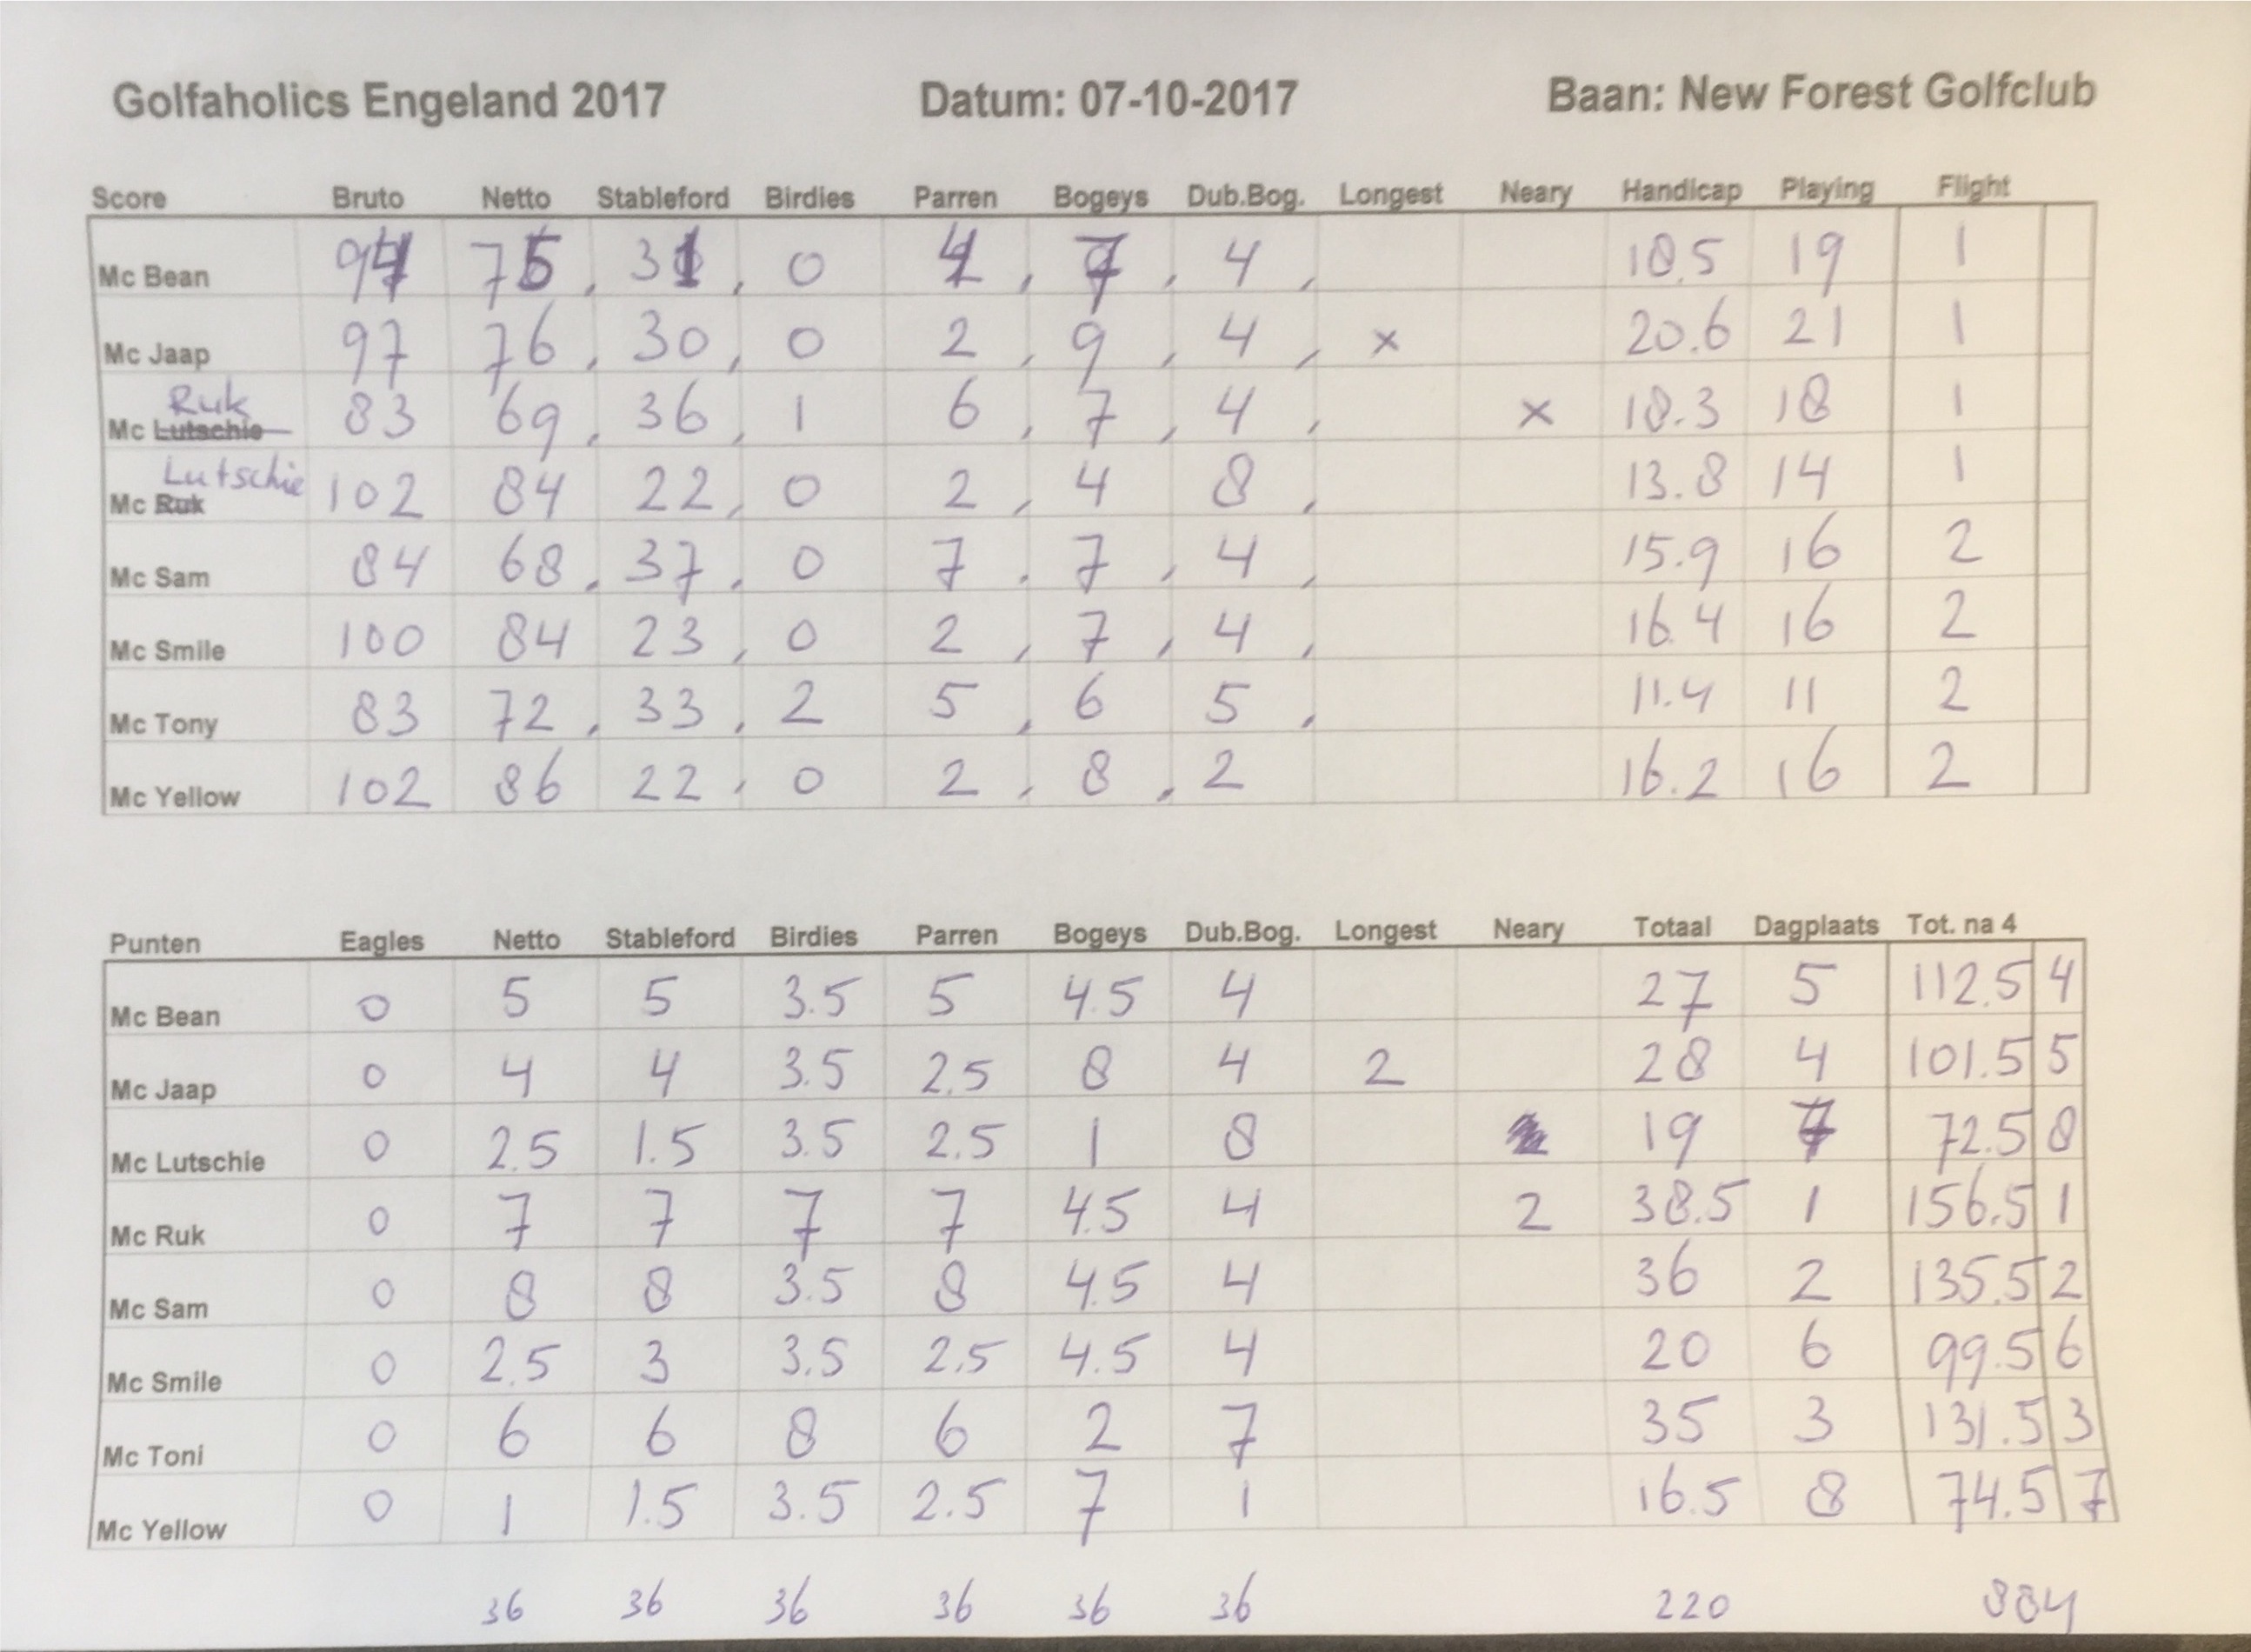 Golfaholics Engeland 2017 Datum: 07-10-2017 Baan: New Forest Golfclub
Score Bruto Netto Stableford Birdies Parren Bogeys Dub.Bog. Longest Neary Handicap Playing Flight
Mc Bean 0 4 18.5 19 1
Mc Jaap 97 76 30 0 2 9 4 x 20.6 21 1
Ruk
Mc Lutschie 83 69 36 1 6 7 4 x 18.3 18 1
Lutschie
Mc Ruk 102 84 22 0 2 4 8 13.8 14 1
Mc Sam 84 68 37 0 7 7 4 15.9 16 2
Mc Smile 100 84 23 0 2 7 4 16.4 16 2
Mc Tony 83 72 33 2 5 6 5 11.4 11 2
Mc Yellow 102 86 22 0 2 8 2 16.2 16 2
Punten Eagles Netto Stableford Birdies Parren Bogeys Dub.Bog. Longest Neary Totaal Dagplaats Tot. na 4
Mc Bean 0 5 5 3.5 5 4.5 4 27 5 112.5 4
Mc Jaap 0 4 4 3.5 2.5 8 4 2 28 4 101.5 5
Mc Lutschie 0 2.5 1.5 3.5 2.5 1 8 19 7 72.5 8
Mc Ruk 0 7 7 7 7 4.5 4 2 38.5 1 156.5 1
Mc Sam 0 8 8 3.5 8 4.5 4 36 2 135.5 2
Mc Smile 0 2.5 3 3.5 2.5 4.5 4 20 6 99.5 6
Mc Toni 0 6 6 8 6 2 7 35 3 131.5 3
Mc Yellow 0 1 1.5 3.5 2.5 7 1 16.5 8 74.5 7
36 36 36 36 36 36 220 884